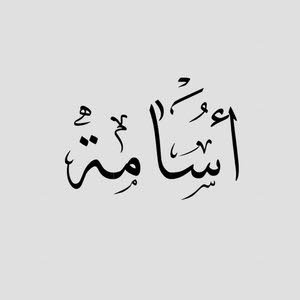 أُسَامَةُ